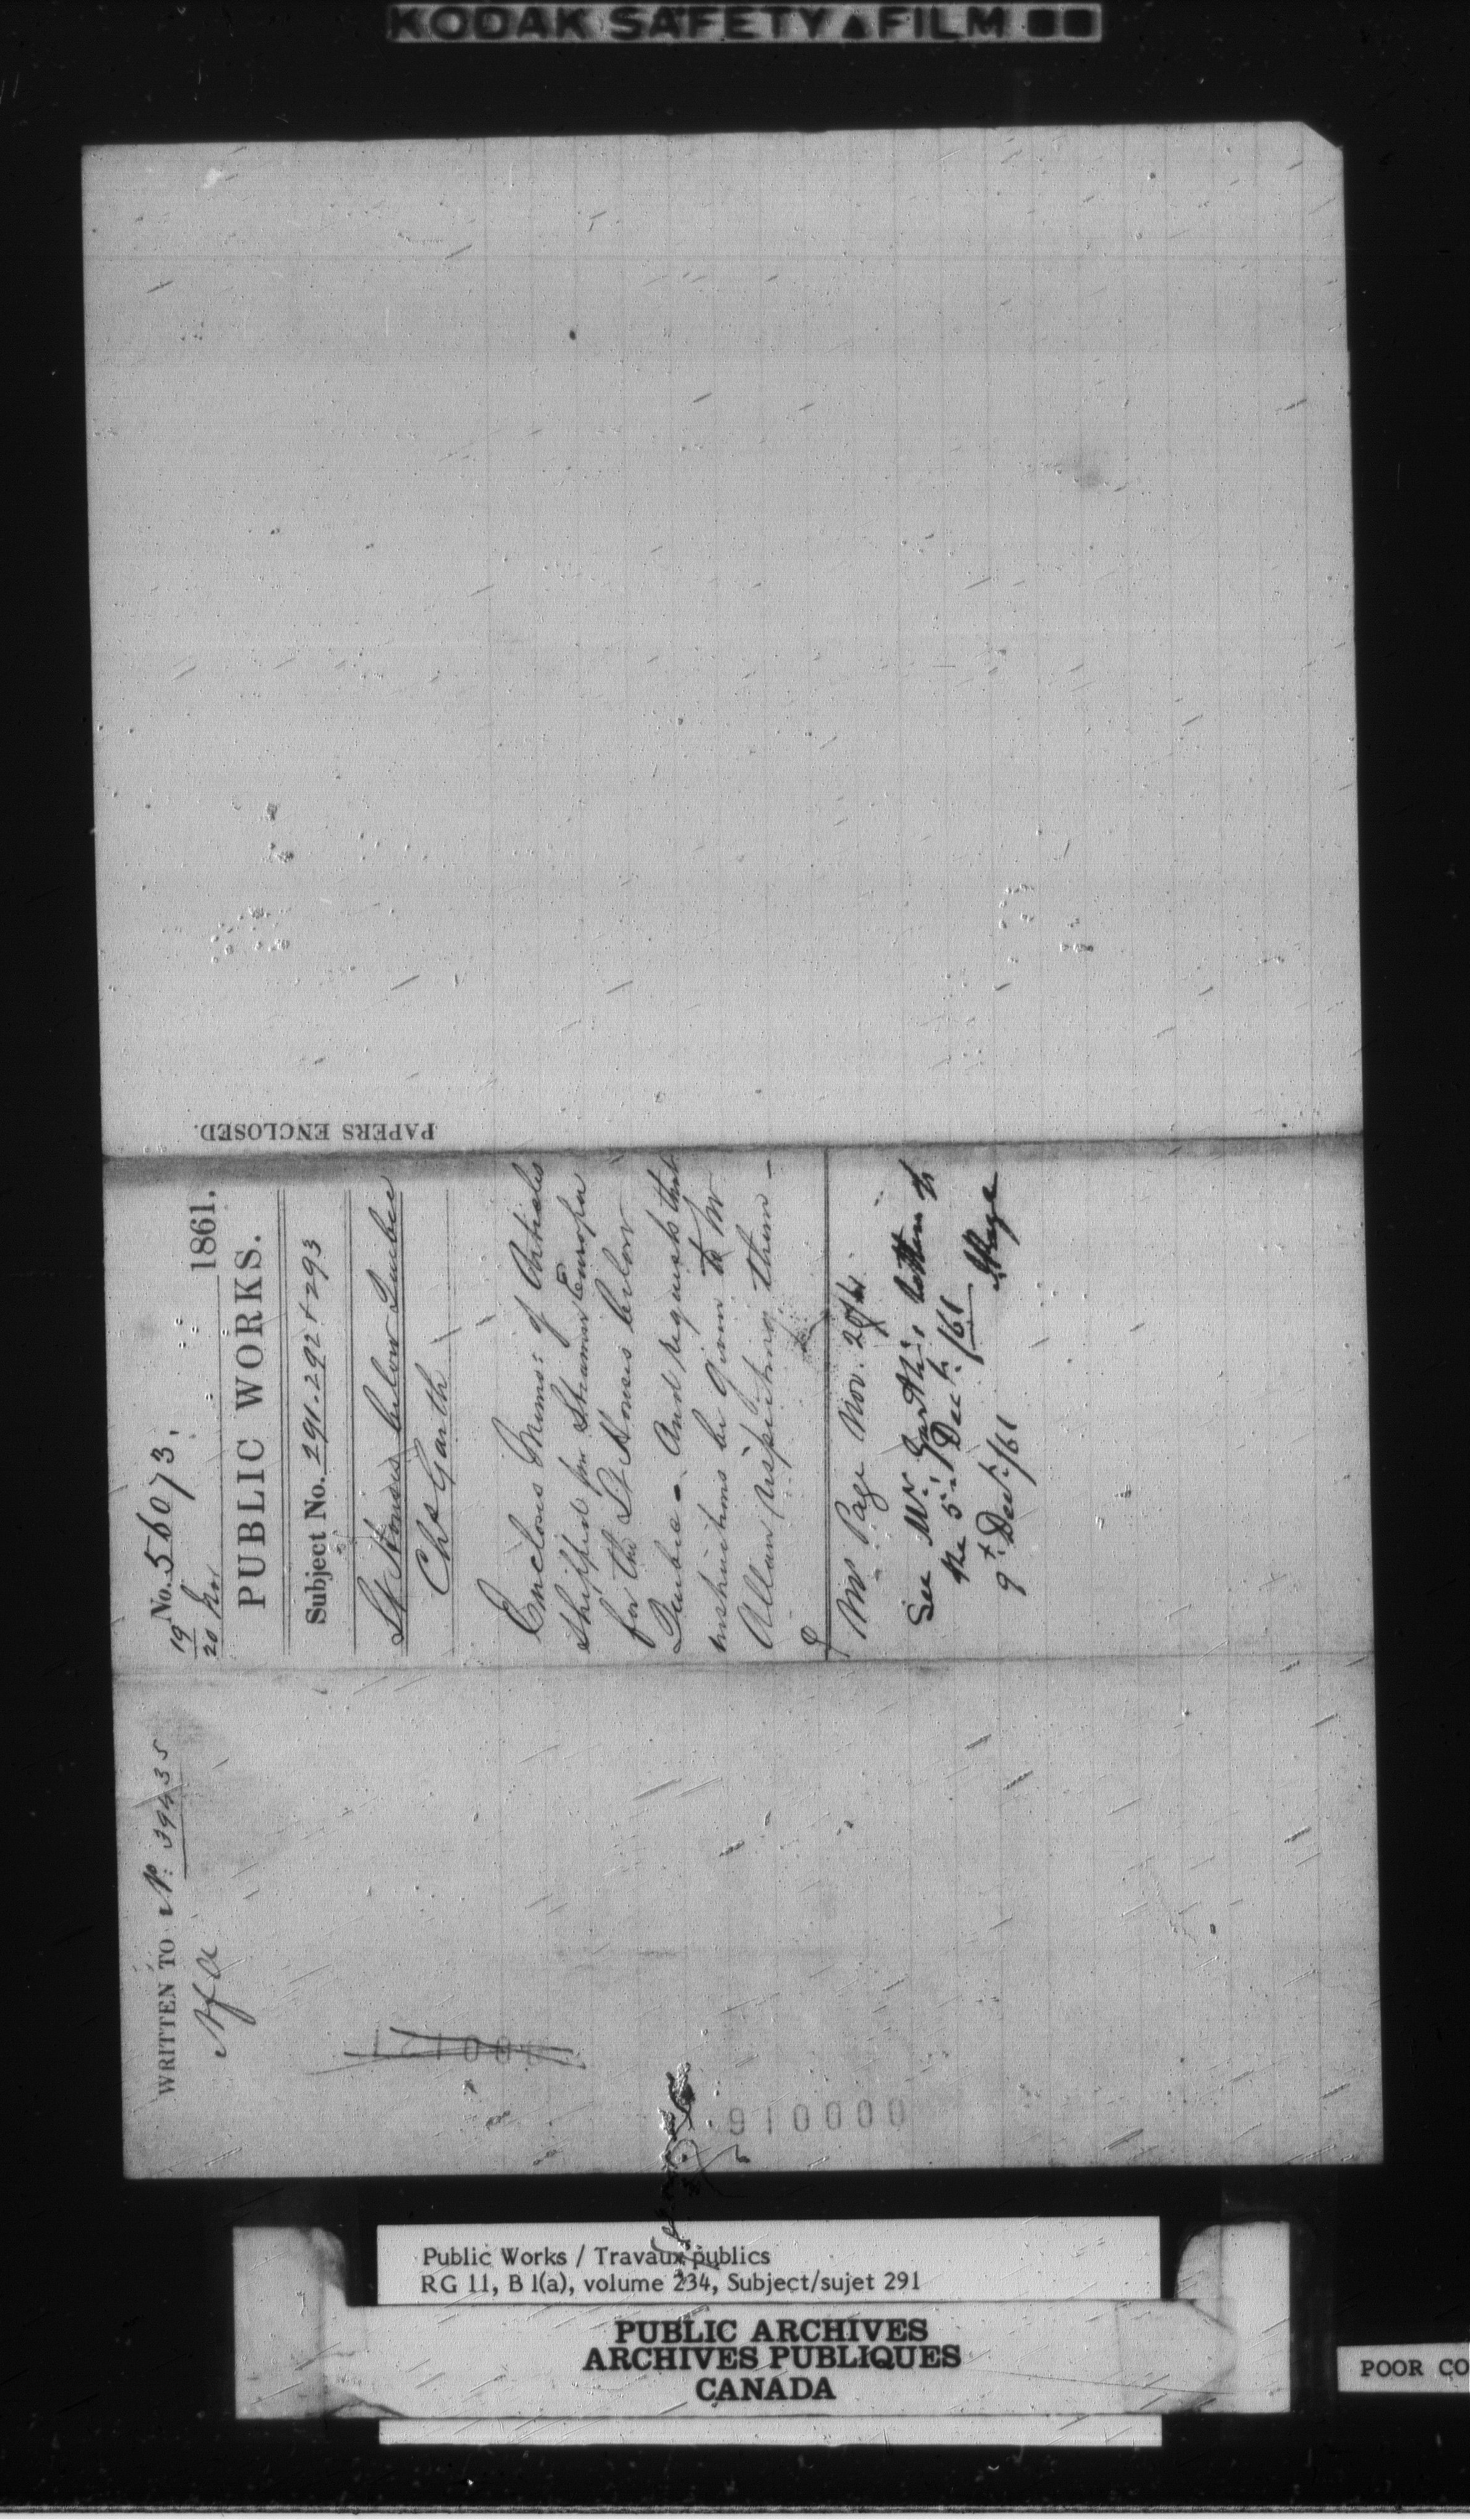 KODAK SAFETY ▲ FILM ■■
PAPERS ENCLOSED.
19 No. 56073. 1861.
20 Nov
PUBLIC WORKS.
Subject No. 291.292 & 293
Lt Houses below Quebec
Chs Garth
Encloses Memo: of Articles
Shipped per Steamer Europa
for the Lt Houses below
Quebec - And requests that
instructions be given to Mr
Allan respecting them -
Mr Page Nov. 20/61
See Mr Garth's letter of
the 5th Dect /61
9th Dect /61 JPage
WRITTEN TO No: 39435
910000
Public Works / Travaux publics
RG 11, B 1(a), volume 234, Subject/sujet 291
PUBLIC ARCHIVES
ARCHIVES PUBLIQUES
CANADA
POOR CO